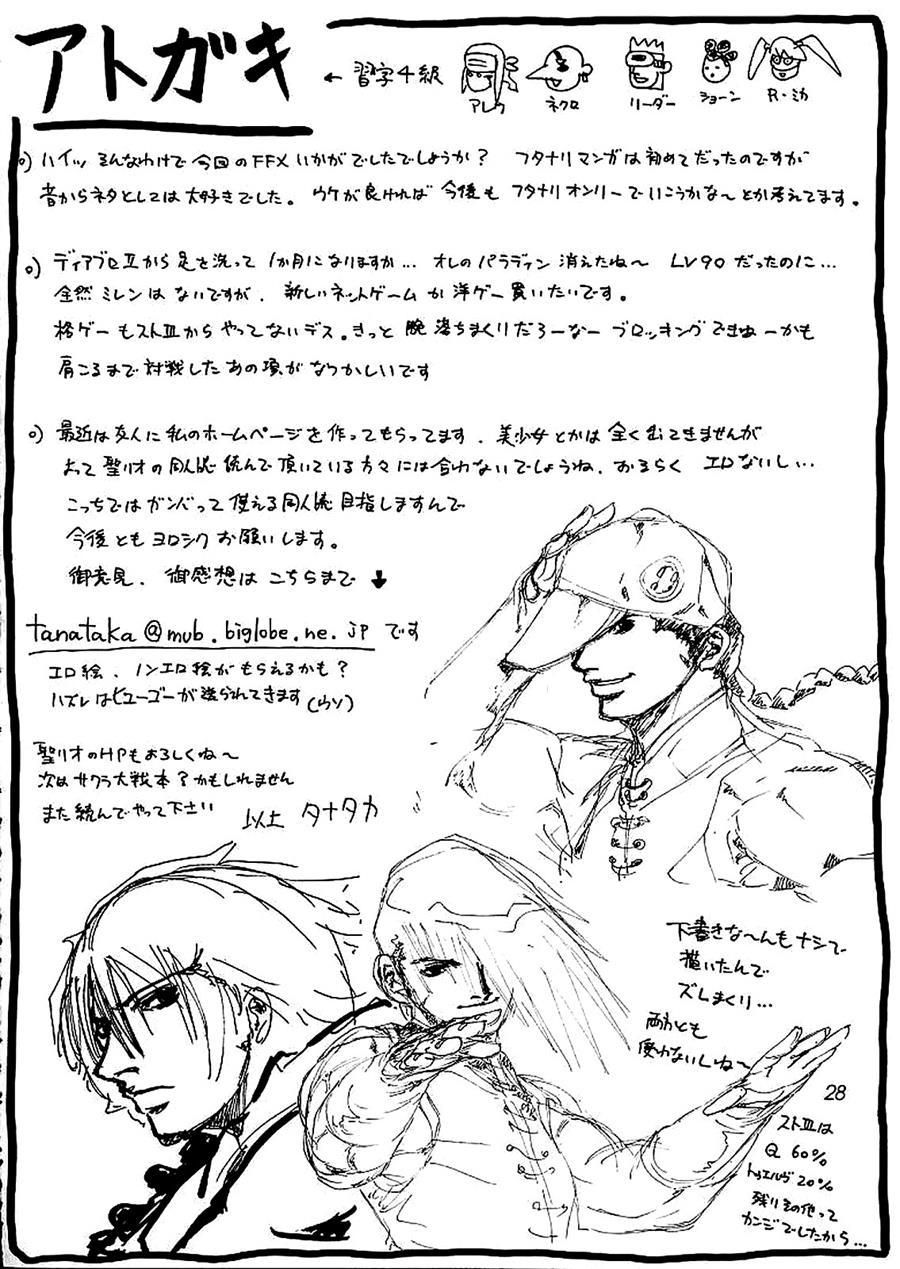 アトガキ
← 習字4級
アレク
ネクロ
リーダー
ショーン
R・ミカ
o) ハイッ そんなわけで今回のFFXいかがでしたでしょうか? フタナリマンガは初めてだったのですが
昔からネタとしては大好きでした。 ウケが良ければ 今後も フタナリオンリーでいこうかな〜とか考えてます。
o) ディアブロⅡから足を洗って 1か月になりますか… オレのパラディン消えたね〜 LV90だったのに…
全然ミレンはないですが、新しいネットゲームか洋ゲー買いたいです。
格ゲーもストⅢからやってないデス。きっと腕落ちまくりだろーなー ブロッキングできねーかも
肩こるまで対戦したあの頃がなつかしいです
o) 最近は友人に私のホームページを作ってもらってます、美少女とかは全く出てきませんが
よって聖リオの同人誌読んで頂いている方々には合わないでしょうね、おそらく エロないし…
こっちではガンバって使える同人誌目指しますんで
今後ともヨロシクお願いします。
御意見、御感想はこちらまで ↓
tanataka@mub.biglobe.ne.jp です
エロ絵、ノンエロ絵がもらえるかも?
ハズレはヒューゴーが送られてきます(ウソ)
聖リオのHPもよろしくね〜
次はサクラ大戦本?かもしれません
また読んでやって下さい
以上 タナタカ
下書きな〜んもナシで
描いたんで
ズレまくり…
両わとも
使わないしね〜
28
ストⅢは
Q 60%
トゥエルヴ20%
残りその他って
カンジでしたから…